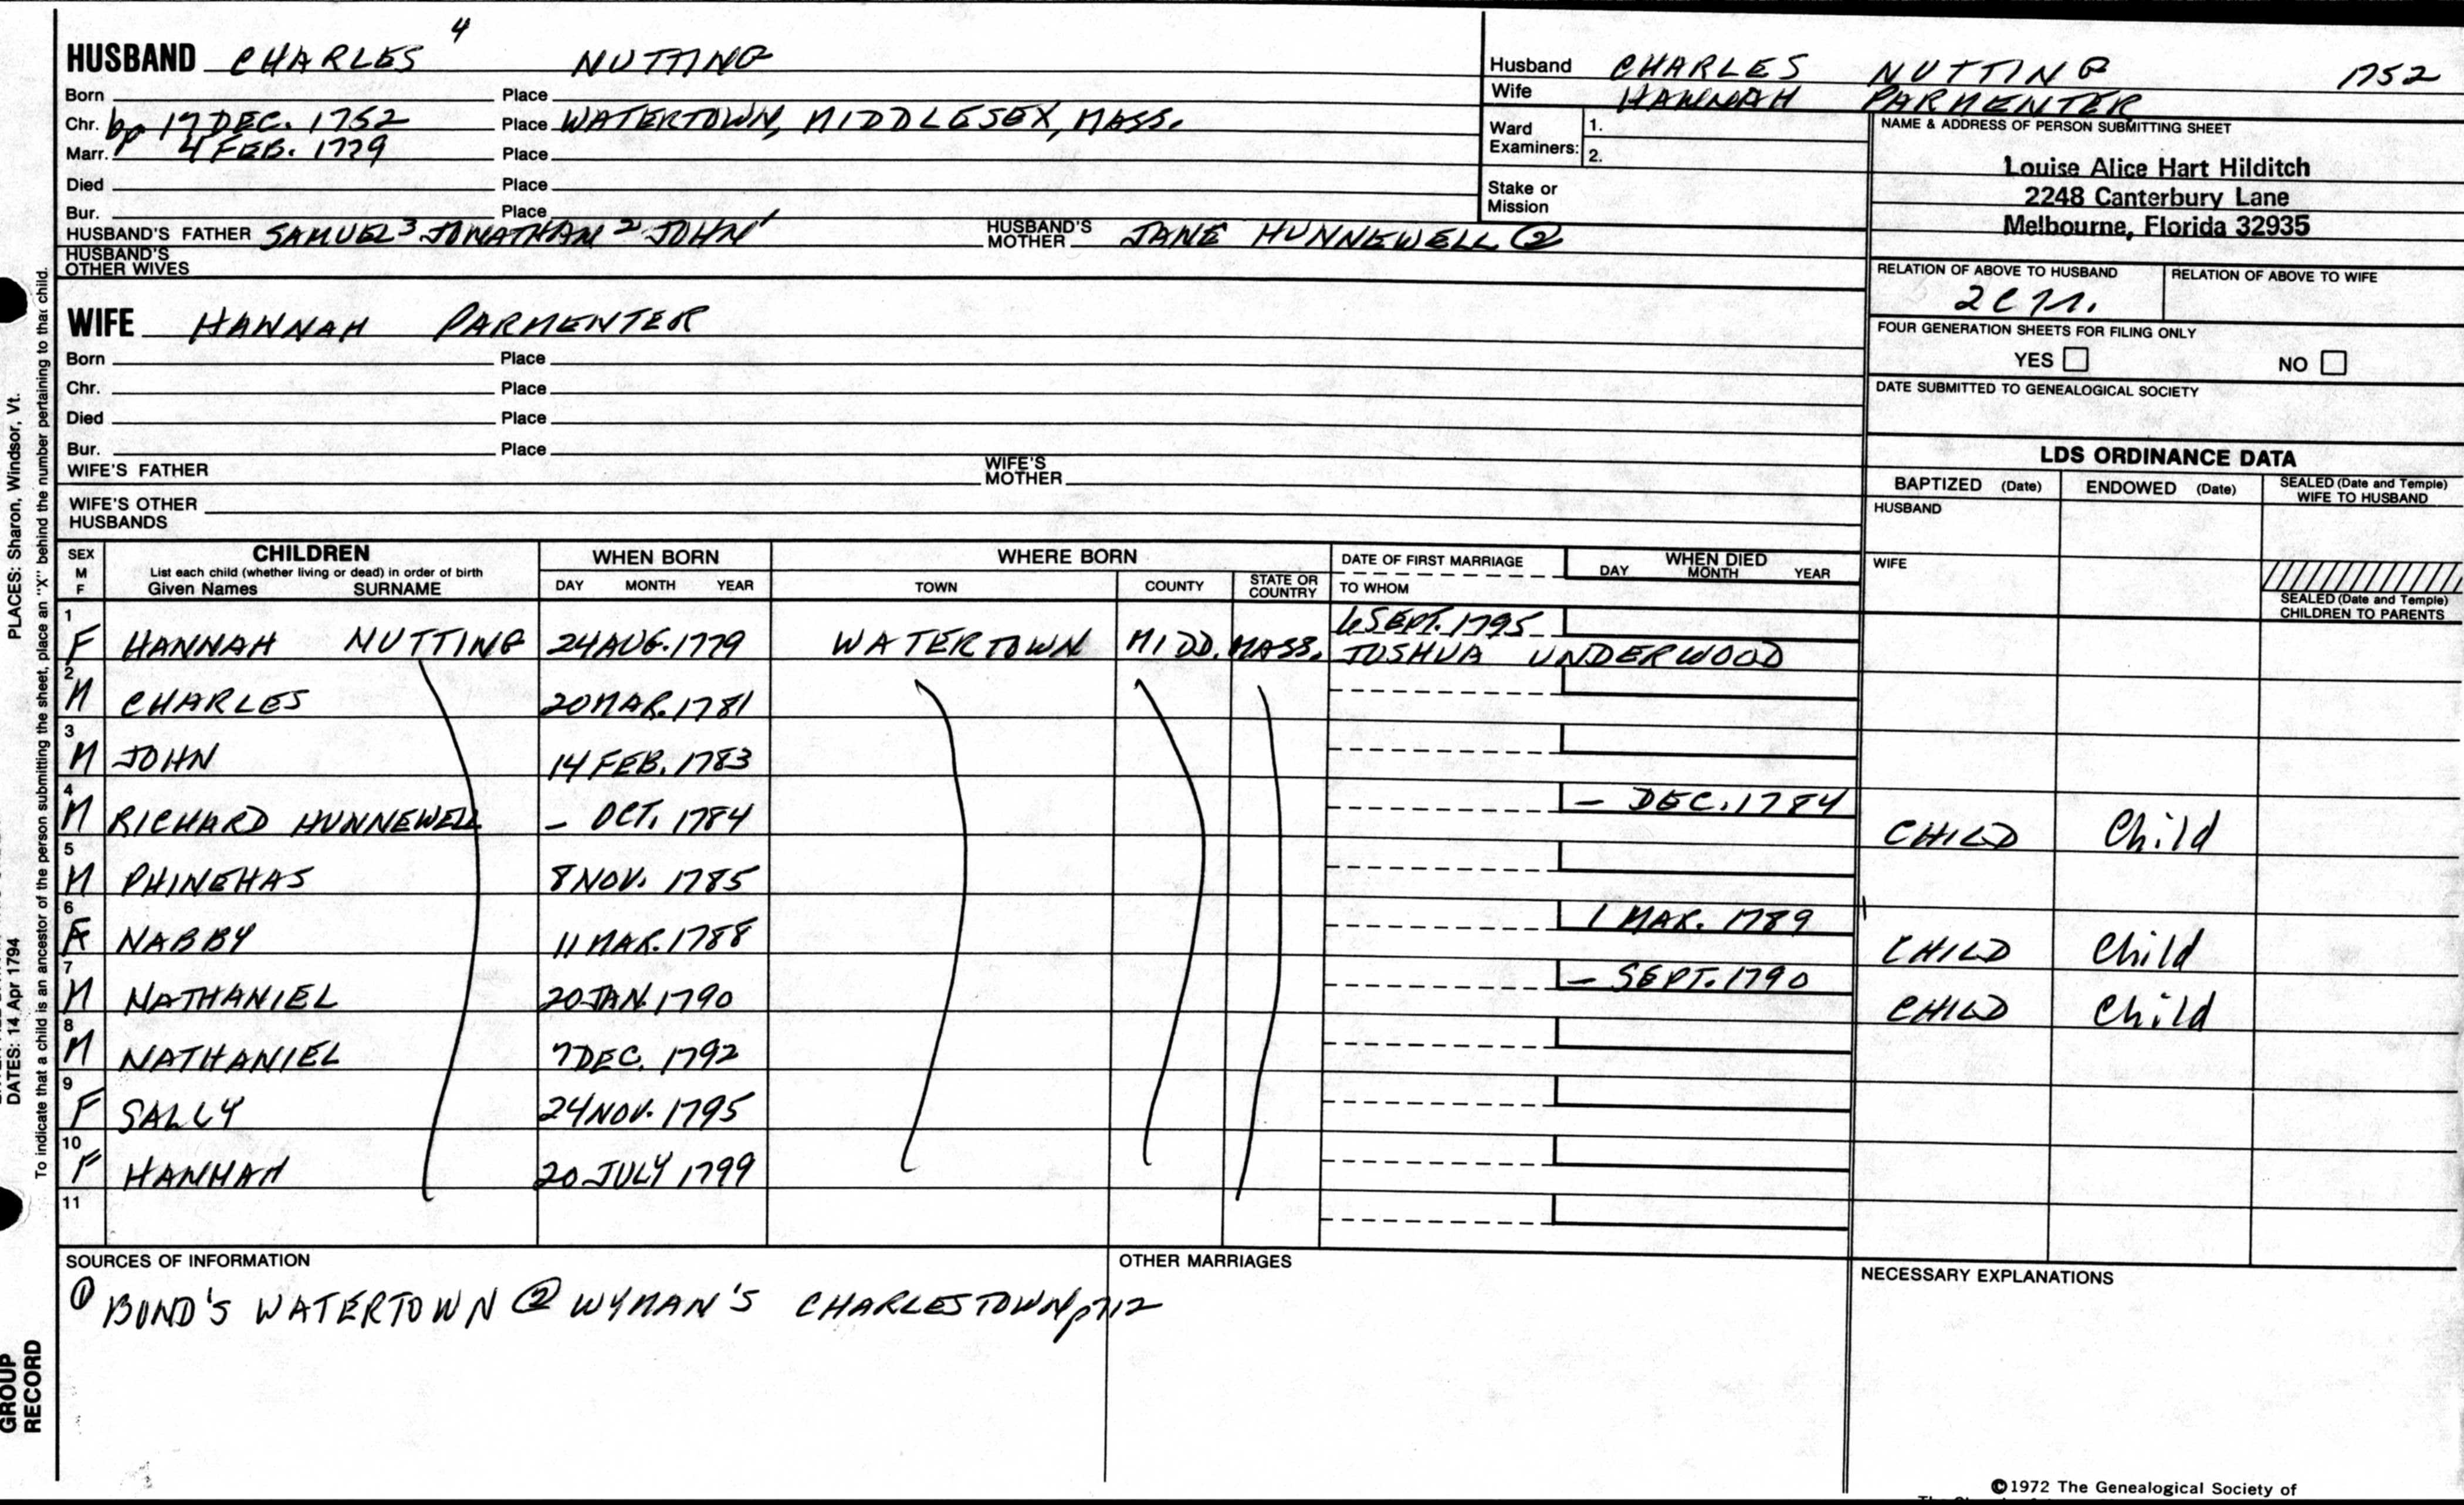 HUSBAND CHARLES 4 NUTTING
Born Place
Chr. bp 17 DEC. 1752 Place WATERTOWN, MIDDLESEX, MASS.
Marr. 4 FEB. 1779 Place
Died Place
Bur. Place
HUSBAND'S FATHER SAMUEL 3 JONATHAN 2 JOHN 1 HUSBAND'S MOTHER JANE HUNNEWELL ②
HUSBAND'S OTHER WIVES
WIFE HANNAH PARMENTER
Born Place
Chr. Place
Died Place
Bur. Place
WIFE'S FATHER WIFE'S MOTHER
WIFE'S OTHER HUSBANDS
Husband CHARLES NUTTING 1752
Wife HANNAH PARMENTER
Ward Examiners: 1.
2.
Stake or Mission
NAME & ADDRESS OF PERSON SUBMITTING SHEET
Louise Alice Hart Hilditch
2248 Canterbury Lane
Melbourne, Florida 32935
RELATION OF ABOVE TO HUSBAND RELATION OF ABOVE TO WIFE
FOUR GENERATION SHEETS FOR FILING ONLY
YES NO
DATE SUBMITTED TO GENEALOGICAL SOCIETY
LDS ORDINANCE DATA
BAPTIZED (Date) ENDOWED (Date) SEALED (Date and Temple) WIFE TO HUSBAND
HUSBAND
WIFE
SEALED (Date and Temple) CHILDREN TO PARENTS
SEX M F CHILDREN WHEN BORN WHERE BORN DATE OF FIRST MARRIAGE WHEN DIED
List each child (whether living or dead) in order of birth
Given Names SURNAME DAY MONTH YEAR TOWN COUNTY STATE OR COUNTRY TO WHOM DAY MONTH YEAR
1 F HANNAH NUTTING 24 AUG. 1779 WATERTOWN MIDD. MASS. 6 SEPT. 1795 JOSHUA UNDERWOOD
2 M CHARLES 20 MAR. 1781
3 M JOHN 14 FEB. 1783
4 M RICHARD HUNNEWELL – OCT. 1784 – DEC. 1784 CHILD Child
5 M PHINEHAS 8 NOV. 1785
6 F NABBY 11 MAR. 1788 1 MAR. 1789 CHILD Child
7 M NATHANIEL 20 JAN. 1790 – SEPT. 1790 CHILD Child
8 M NATHANIEL 7 DEC. 1792
9 F SALLY 24 NOV. 1795
10 F HANNAH 20 JULY 1799
11
SOURCES OF INFORMATION
① BOND'S WATERTOWN ② WYMAN'S CHARLESTOWN p712
OTHER MARRIAGES
NECESSARY EXPLANATIONS
©1972 The Genealogical Society of
PLACES: Sharon, Windsor, Vt.
DATES: 14 Apr 1794
To indicate that a child is an ancestor of the person submitting the sheet, place an "X" behind the number pertaining to that child.
GROUP
RECORD